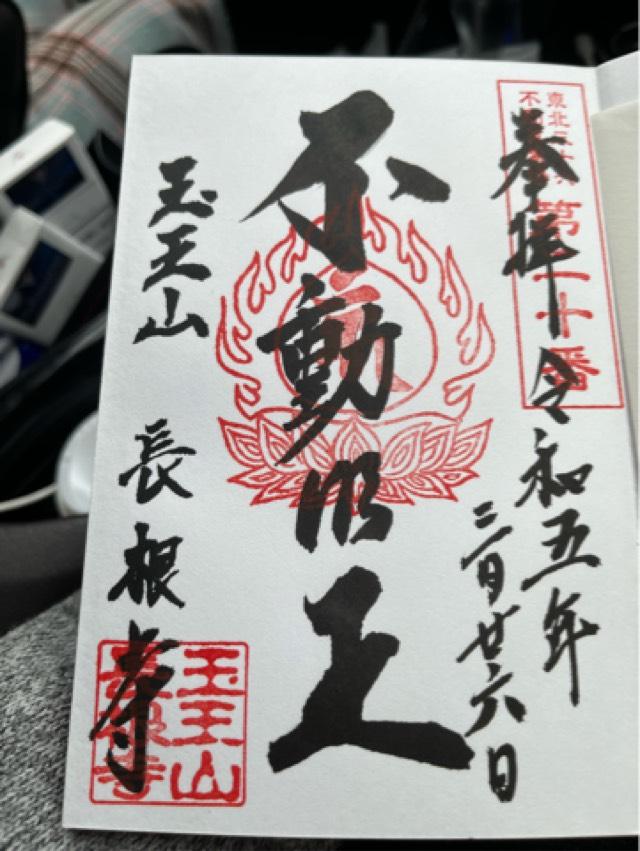 東北三十六
不
第二十番
奉拝 令和五年
二月廿六日
不動明王
玉王山 長根寺
玉王山
長根寺